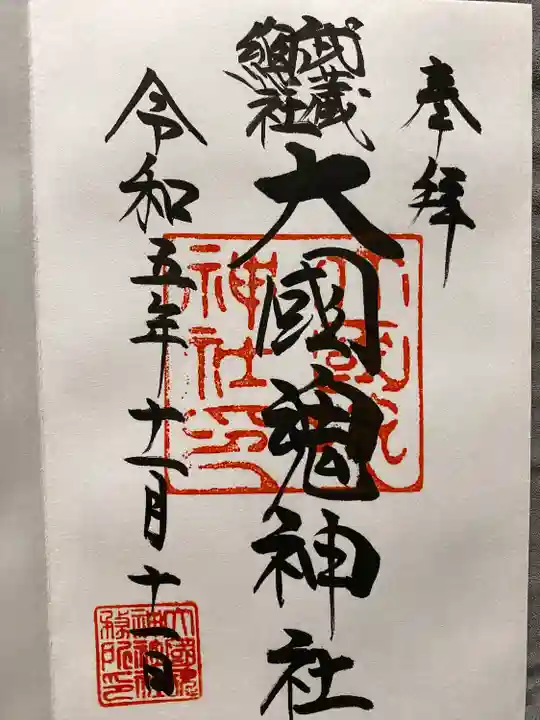 奉拝
武蔵
総社
大國魂神社
令和五年十一月十一日
大國魂
神社印
大國魂
神社
務所印